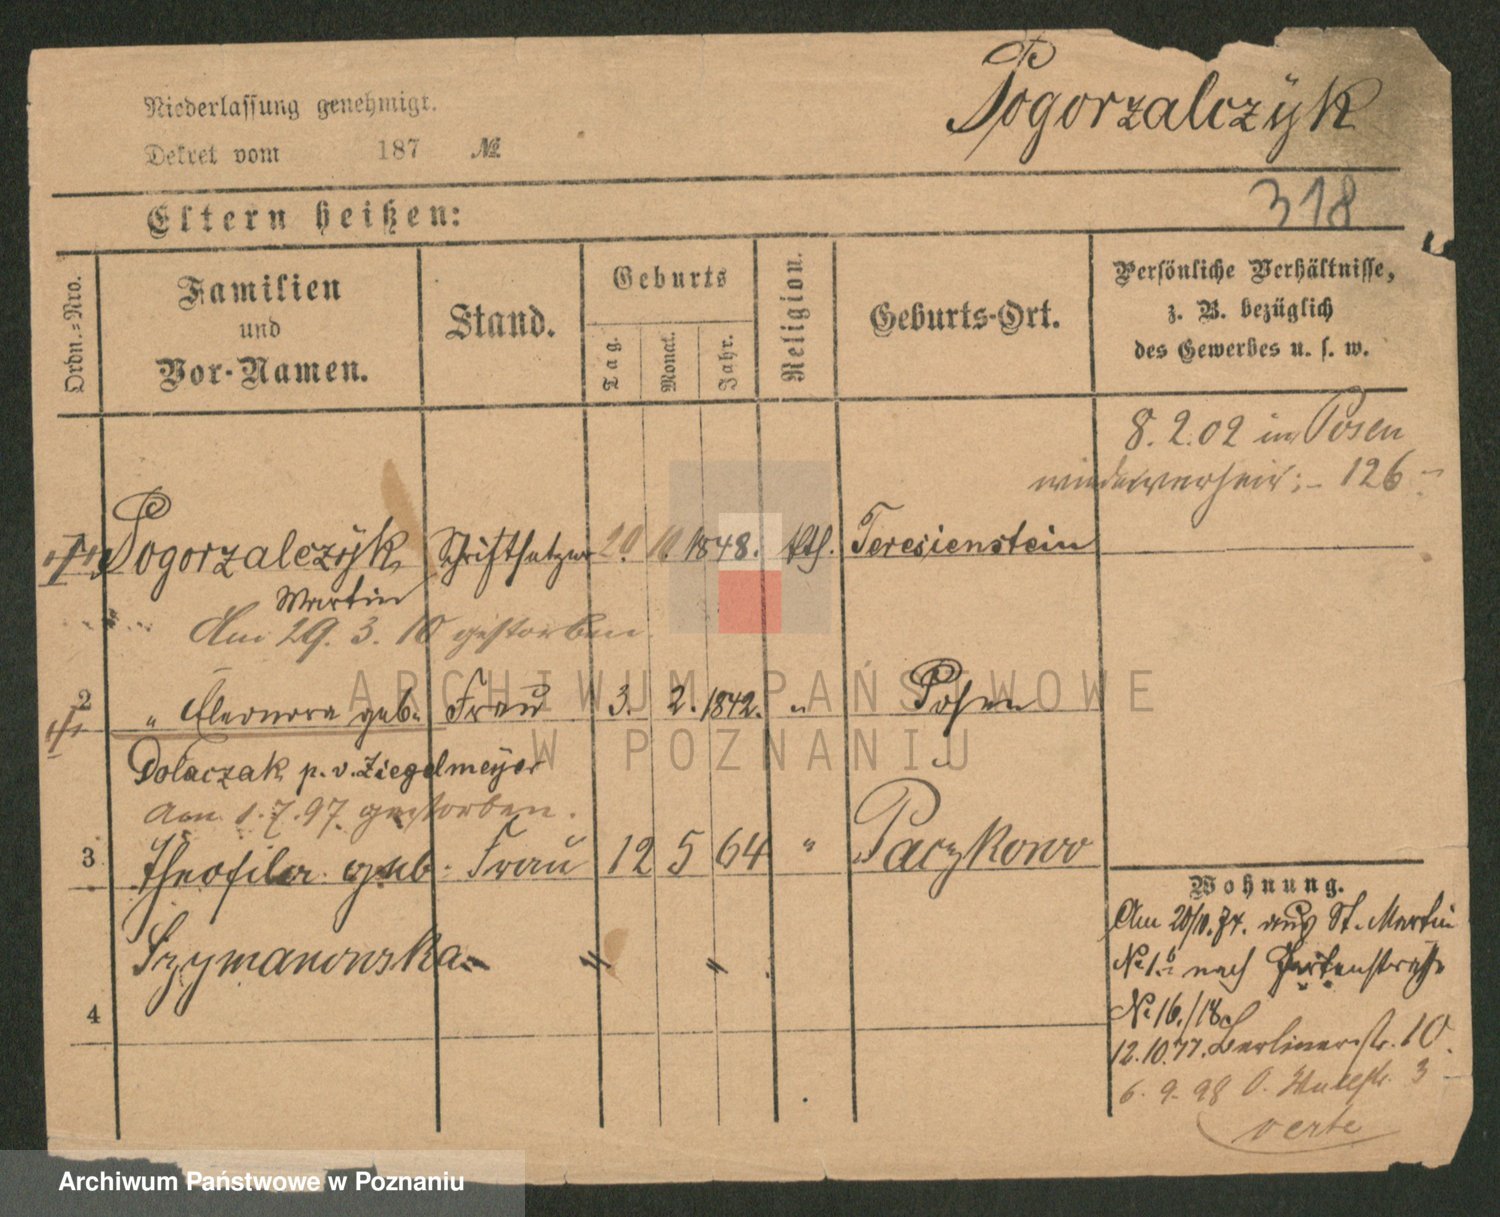 Pogorzalczÿk
Niederlassung genehmigt.
Dekret vom 187 №
318
Eltern heißen:
Ordn.=Nro.
Familien
und
Vor-Namen.
Stand.
Geburts
Tag.
Monat.
Jahr.
Religion.
Geburts-Ort.
Persönliche Verhältnisse,
z. B. bezüglich
des Gewerbes u. s. w.
8. 2. 02 in Posen
wiederverheir; – 126
Pogorzalczÿk Schriftsetzer 20. 10. 1848. kth. Teresienstein
Martin
Am 29. 3. 10 gestorben.
2 " Eleonora geb. Frau 3. 2. 1842. " Posen
Dolaczak p. v. Ziegelmeÿer
am 1. 7. 97 gestorben.
3 Theofila geb. Frau 12 5 64 " Paczkowo
Szymanowska
4
Wohnung.
Am 20/10. 74. aus St. Martin
№ 1. nach Gartenstraße
№ 16./18
12. 10. 77. Berlinerstr. 10
6. 9. 98 O. Wallstr. 3
verte
ARCHIWUM PAŃSTWOWE
W POZNANIU
Archiwum Państwowe w Poznaniu